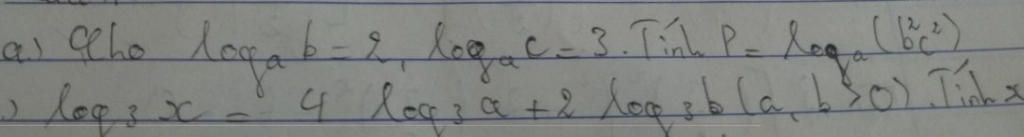 a) Cho logₐ b = 2, logₐ c = 3. Tính P = logₐ (b²c²)
) log₃ x = 4 log₃ a + 2 log₃ b (a, b > 0). Tính x